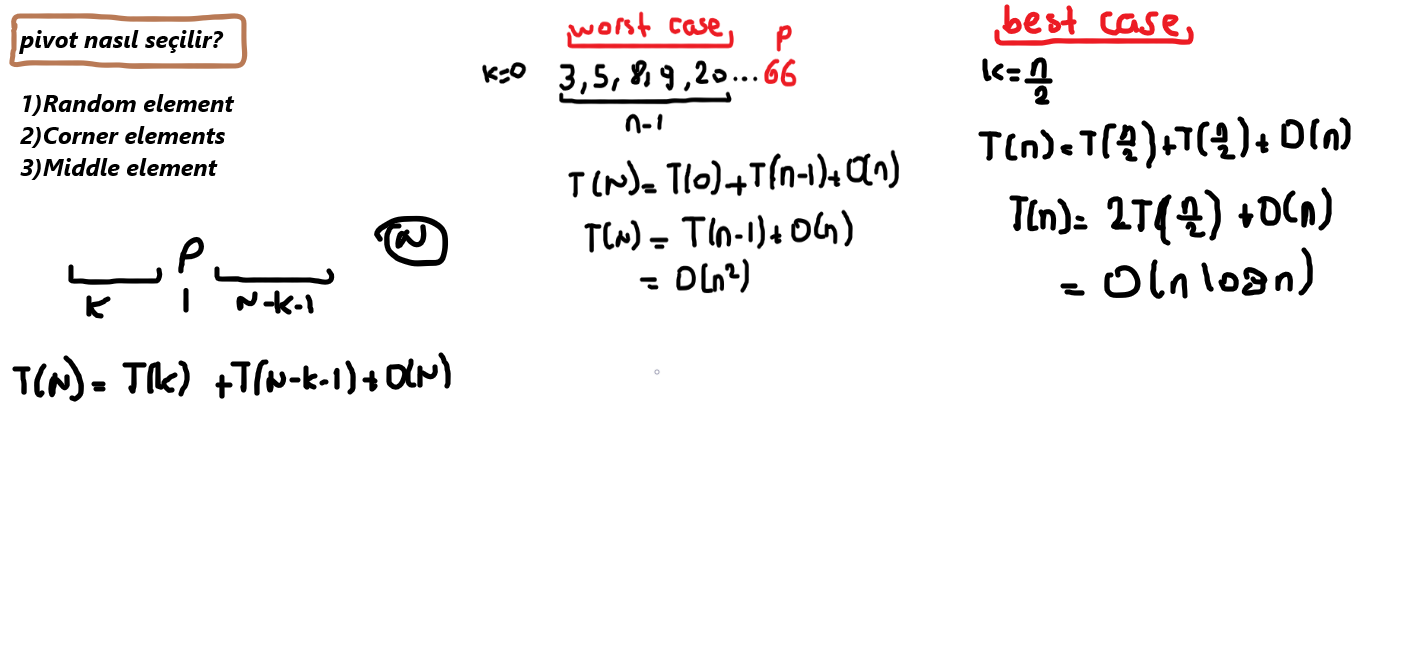 pivot nasıl seçilir?
1)Random element
2)Corner elements
3)Middle element
N
P
K 1 N-K-1
T(N)= T(k) +T(N-k-1)+O(N)
worst case
P
K=0 3,5,8,9,20...66
n-1
T(N)= T(0)+T(n-1)+O(n)
T(N) = T(n-1)+O(n)
= O(n²)
best case
k=n/2
T(n)=T(n/2)+T(n/2)+O(n)
T(n)= 2T(n/2)+O(n)
= O(n logn)